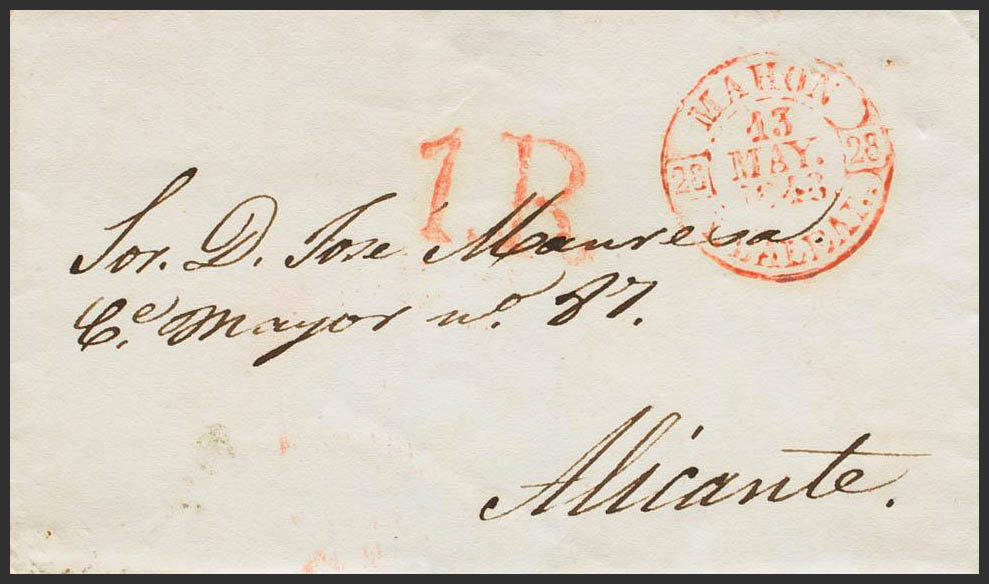 1R
MAHON
13
MAY.
1848
28
28
BALEARES
Sor. D. José Manresa.
Ce. Mayor no. 87.
Alicante.